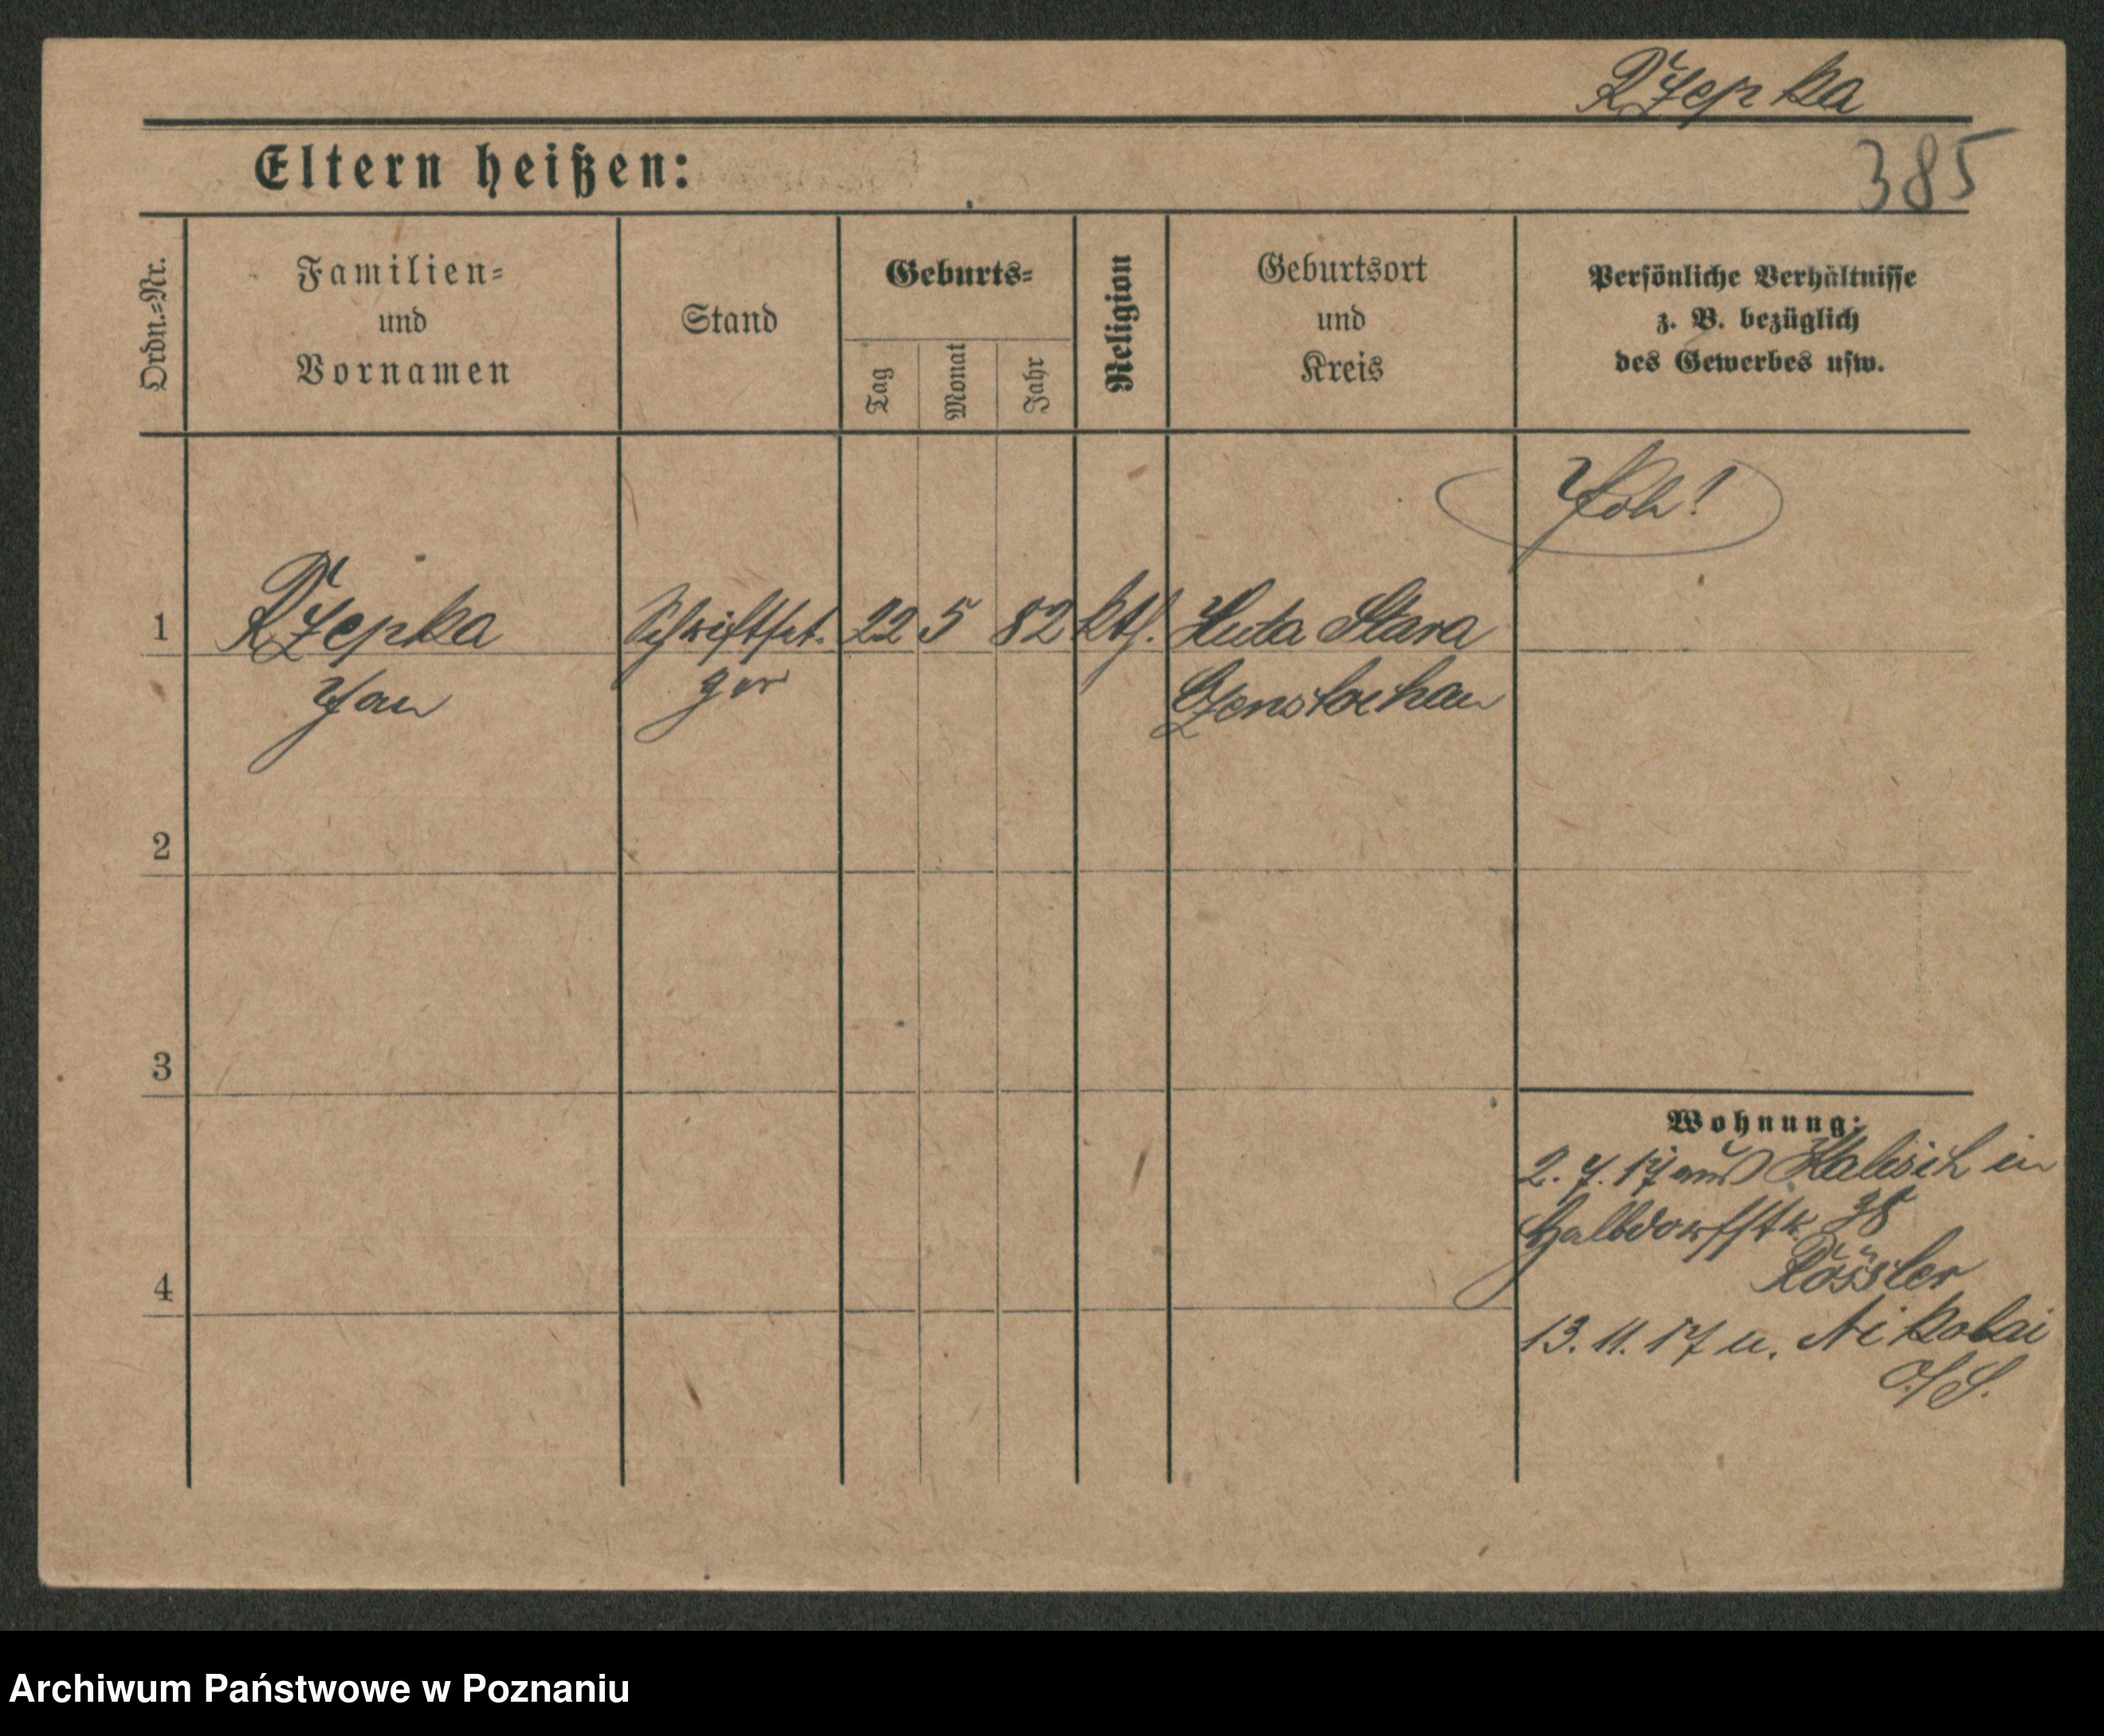 Rzepka
385
Eltern heißen:
Ordn.=Nr.
Familien=
und
Vornamen
Stand
Geburts=
Tag
Monat
Jahr
Religion
Geburtsort
und
Kreis
Persönliche Verhältnisse
z. B. bezüglich
des Gewerbes usw.
1 Rzepka Schriftset. 22 5 82 kth. Huta Stara
Jan zer Czenstochau
2
3
4
Wohnung:
2. 7. 17 aus Kalisch in
Halbdorfstr. 38
Rössler
13. 11. 17 u. Nikolai
O/S.
Archiwum Państwowe w Poznaniu